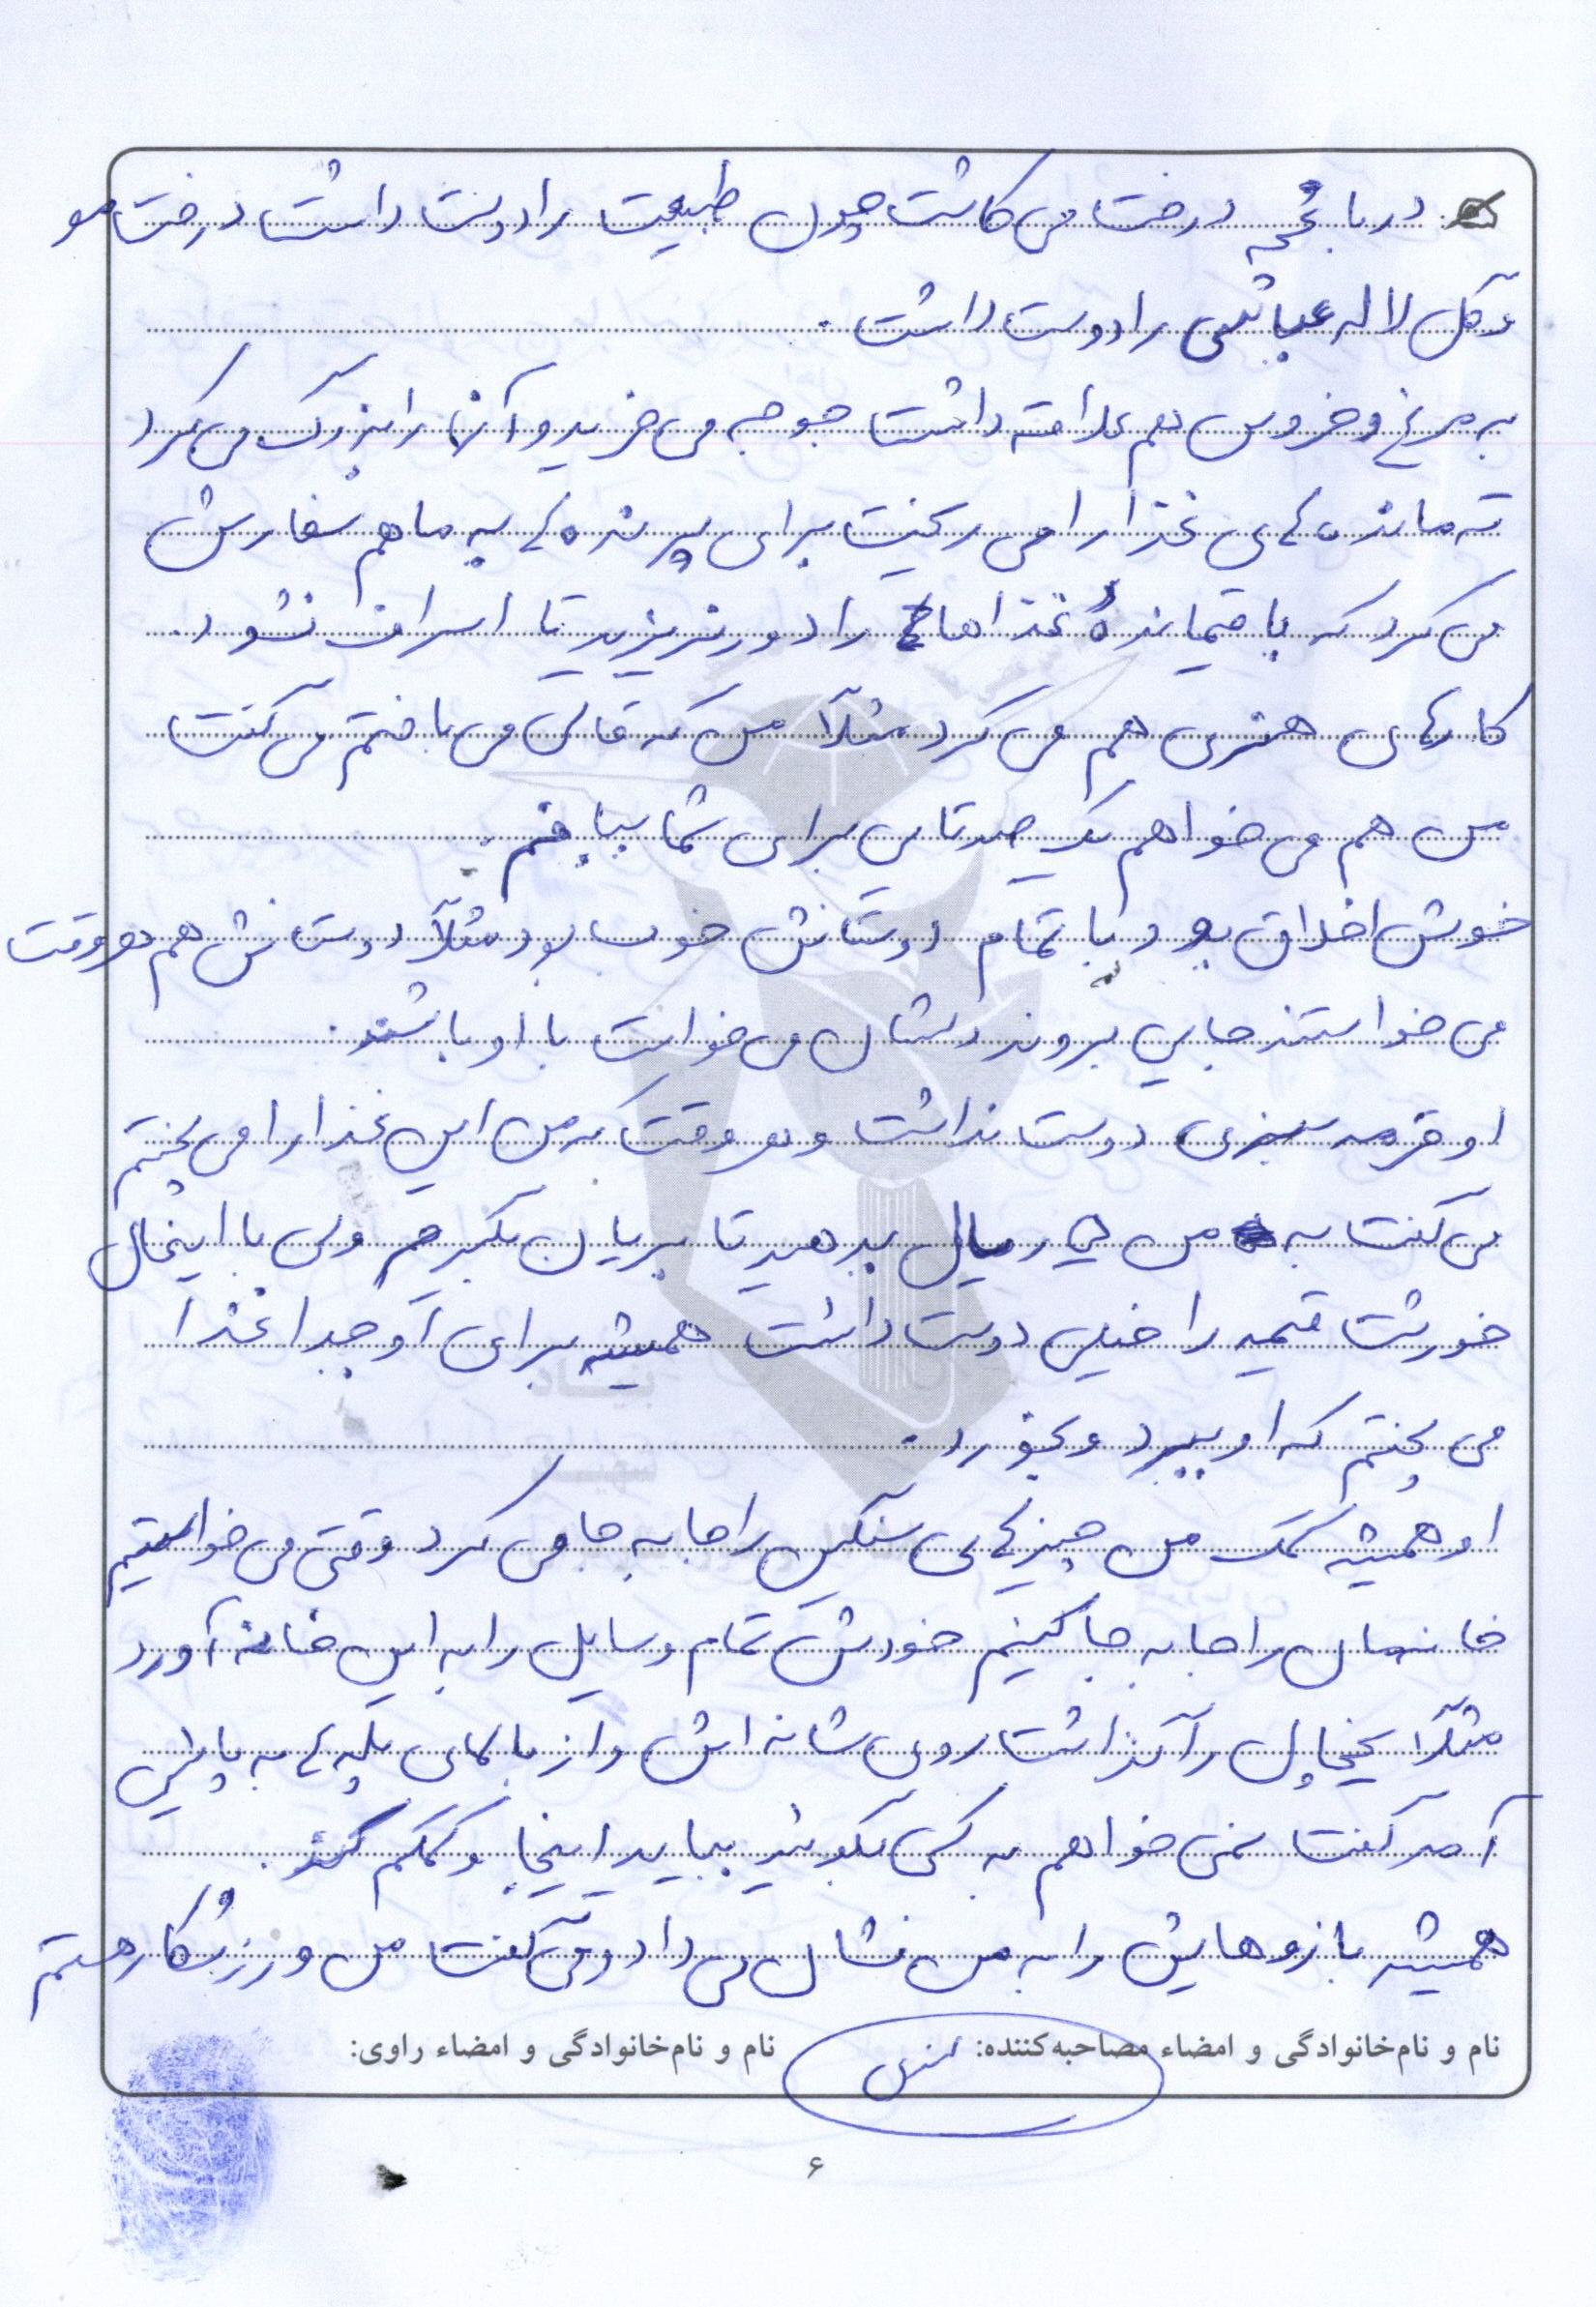 در باغچه درخت می کاشت چون طبیعت را دوست داشت درخت مو
و گل لاله عباسی را دوست داشت.
به مرغ و خروس هم علاقه داشت جوجه می خرید و آنها را بزرگ می کرد
ته مانده های غذا را می ریخت برای پرنده ها به ما هم سفارش
می کرد که باقیمانده غذاها را دور نریزید تا اسراف نشود.
کارهای هنری هم می کرد مثلاً من که قالی می بافتم می گفت
من هم می خواهم یک صدتایی برای شما ببافم.
خوش اخلاق بود و با تمام دوستانش خوب بود مثلاً دوستانش هم هر وقت
می خواستند جایی بروند دلشان می خواست با او باشند.
او قرمه سبزی دوست نداشت و هر وقت که من این غذا را می پختم
می گفت به من ریال بدهید تا بریان بگیرم ولی با اینحال
خورشت قیمه را خیلی دوست داشت همیشه برای او جدا غذا
می پختم که او ببرد و بخورد.
او همیشه کمک من چیزهای سنگین را جا به جا می کرد وقتی می خواستیم
خانه مان را جا به جا کنیم خودش تمام وسایل را به این خانه آورد
مثلاً یخچال را گذاشت روی شانه اش و از بالای پله ها به پایین
آمد گفت نمی خواهم به کسی بگوئید بیاید اینجا و کمکم کند.
همیشه بازوهایش را به من نشان می داد و می گفت من ورزشکار هستم
نام و نام‌خانوادگی و امضاء مصاحبه‌کننده: نام و نام‌خانوادگی و امضاء راوی:
۶